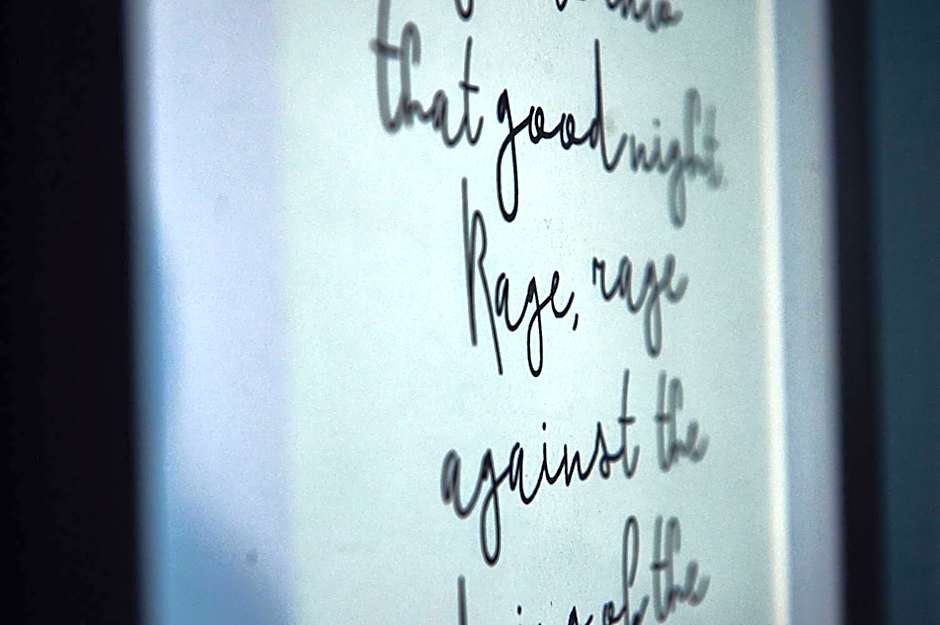 that good night
Rage, rage
against the
of the